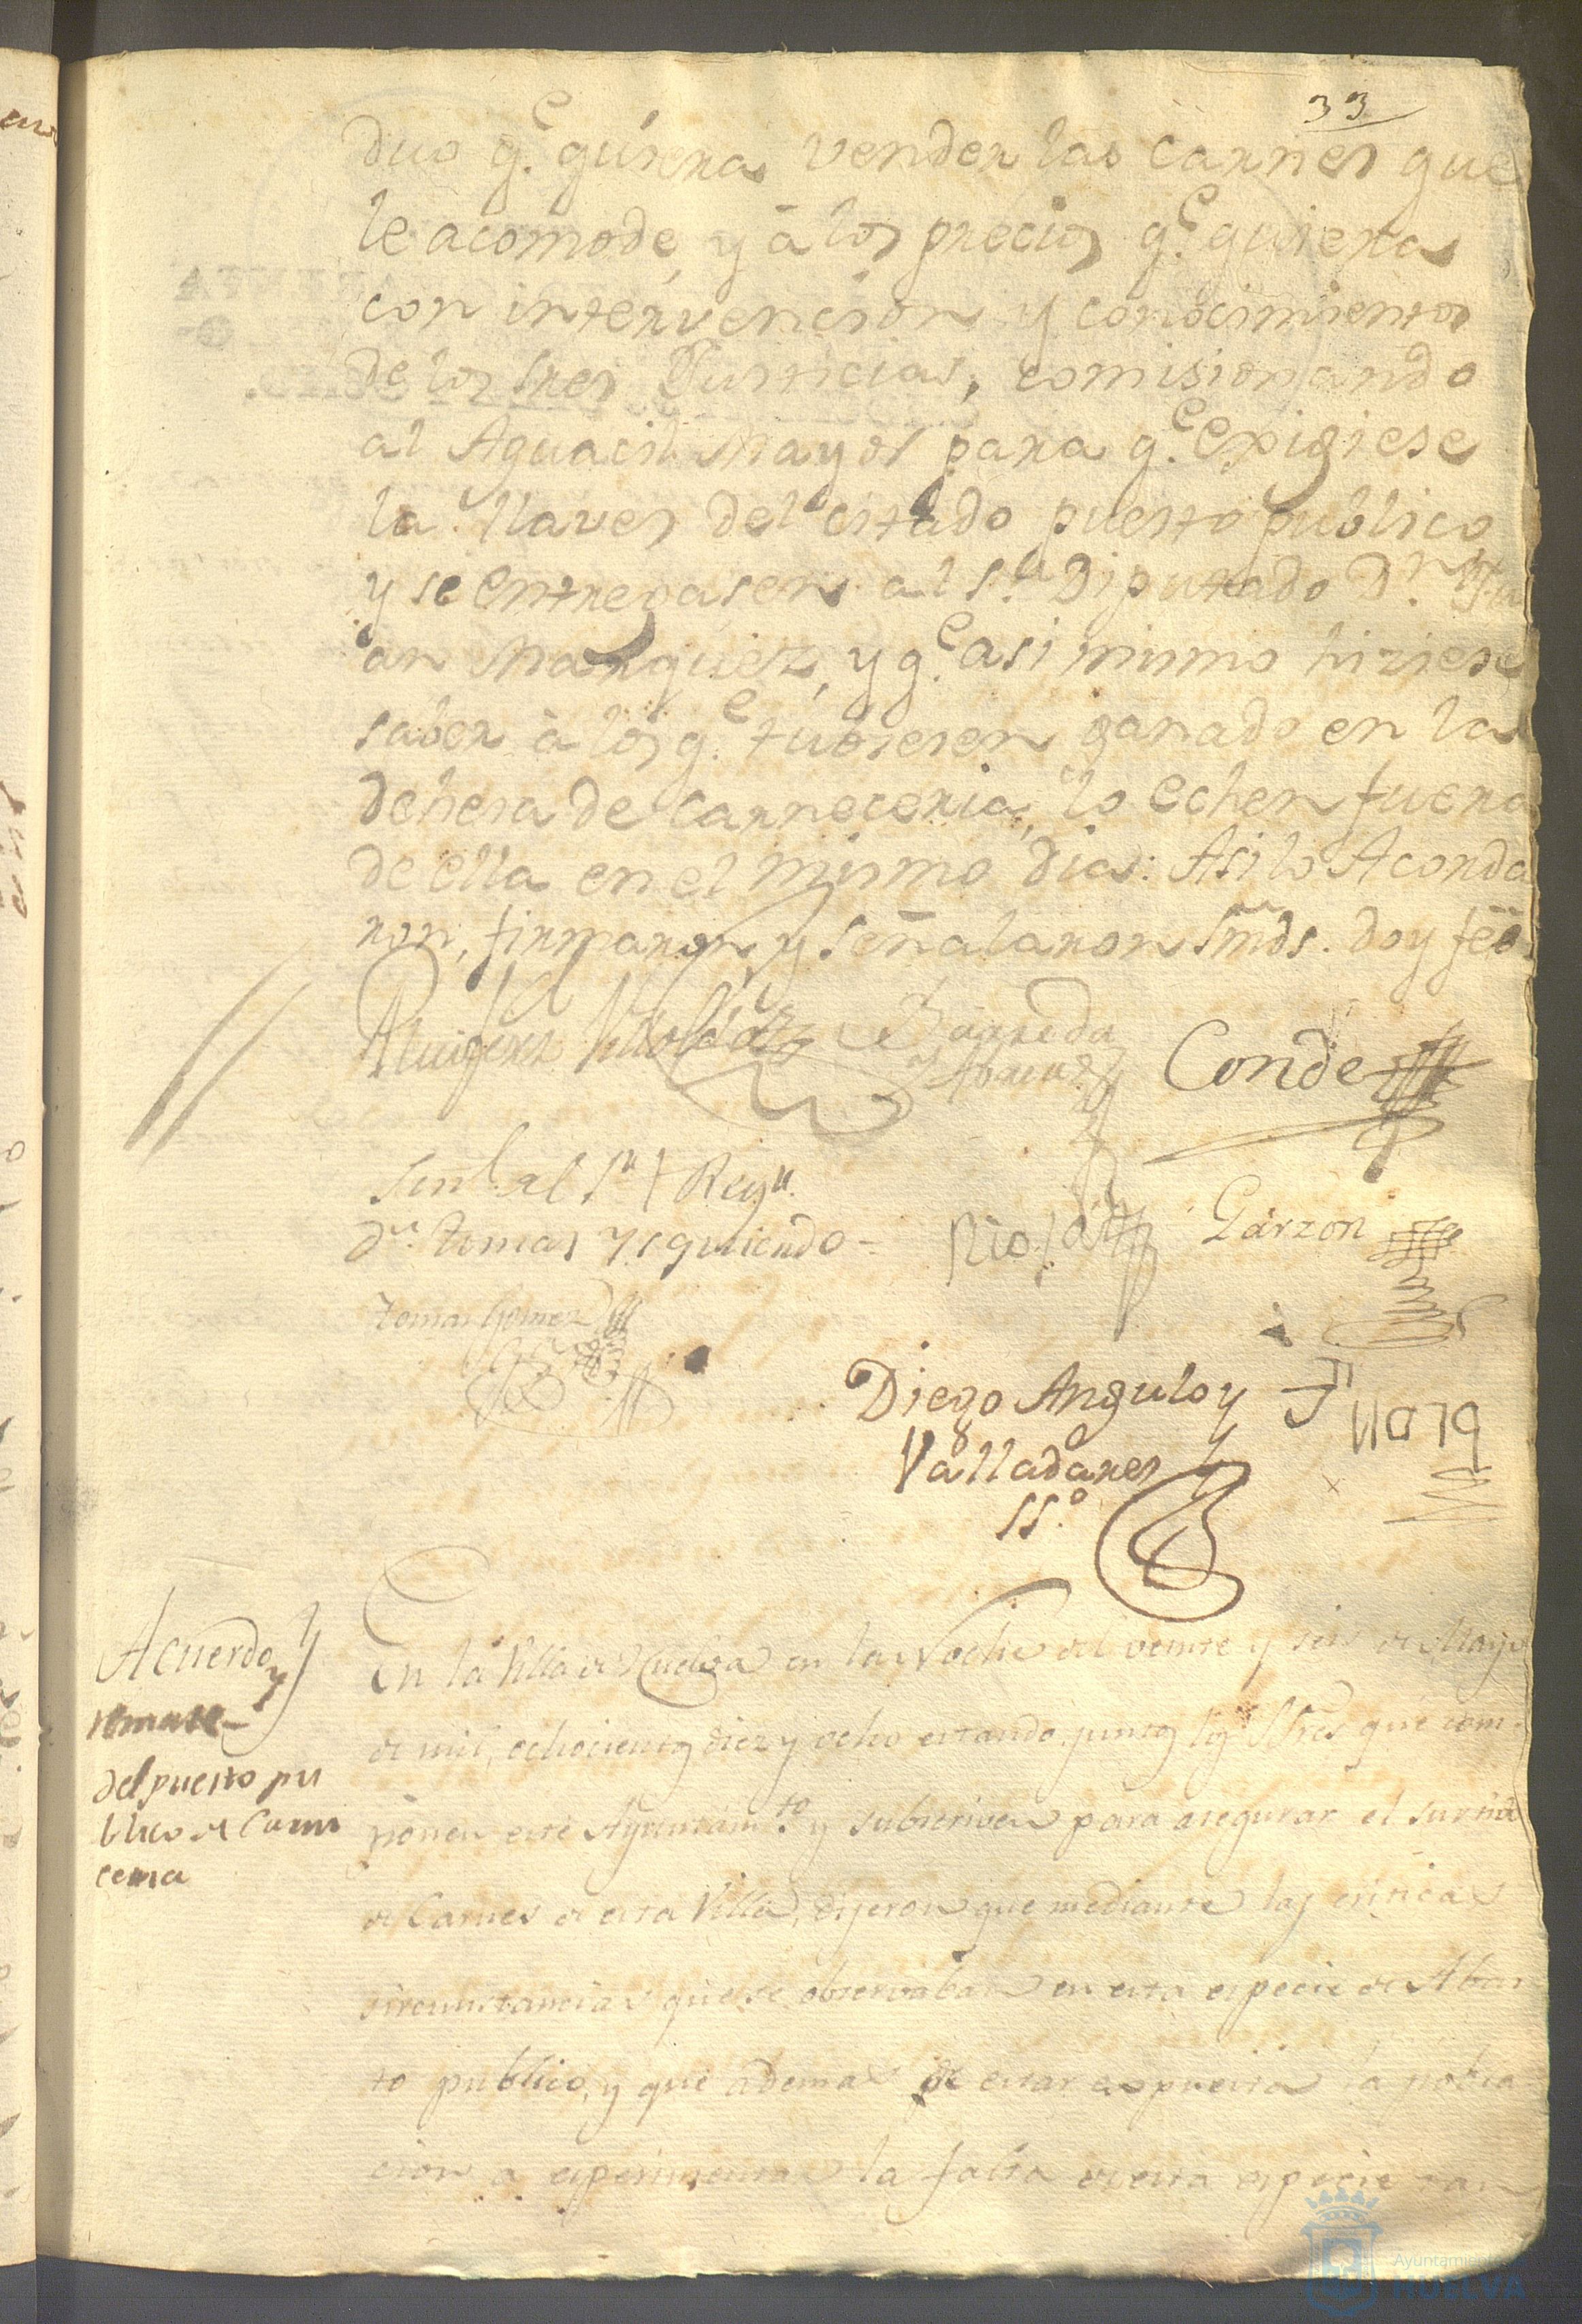 33
duo q.e quisiera vender las carnes que
le acomode, y à los precios q.e quiera
con intervencion y conocimiento
de los Sres Justicias, comisionando
al Aguacil Mayor para q.e exigiese
la llaves del citado puesto publico
y se entregasen al S.r Diputado D.n Ju
an Marquez, y q.e asi mismo hiziese
saber à los q.e tubiesen ganado en la
dehesa de carneceria, lo echen fuera
de ella en el mismo dia: Asi lo Acorda
ron, firmaron, y señalaron Smds. doy feè
Barreda
Conde
Señl. al Sr + Regr.
Dn. Tomas Ysquierdo=
Garzon
Tomas Gomez
Diego Angulo y
Valladares
SS.o
Acuerdo y
remate
del puesto pu
blico de Carni
ceria
En la Villa de Huelva en la Noche del veinte y seis de Mayo
de mil, ochocientos diez y ocho estando juntos los Sres que com-
ponen este Ayuntam.to y subscriven para asegurar el surtido
de Carnes de esta Villa, dijeron que mediante las criticas
circunstancias que se observaban en esta especie de Abas
to publico, y que ademas de estar expuesta la pobla
cion a esperimentar la falta de esta especie tan
Ayuntamiento
HUELVA